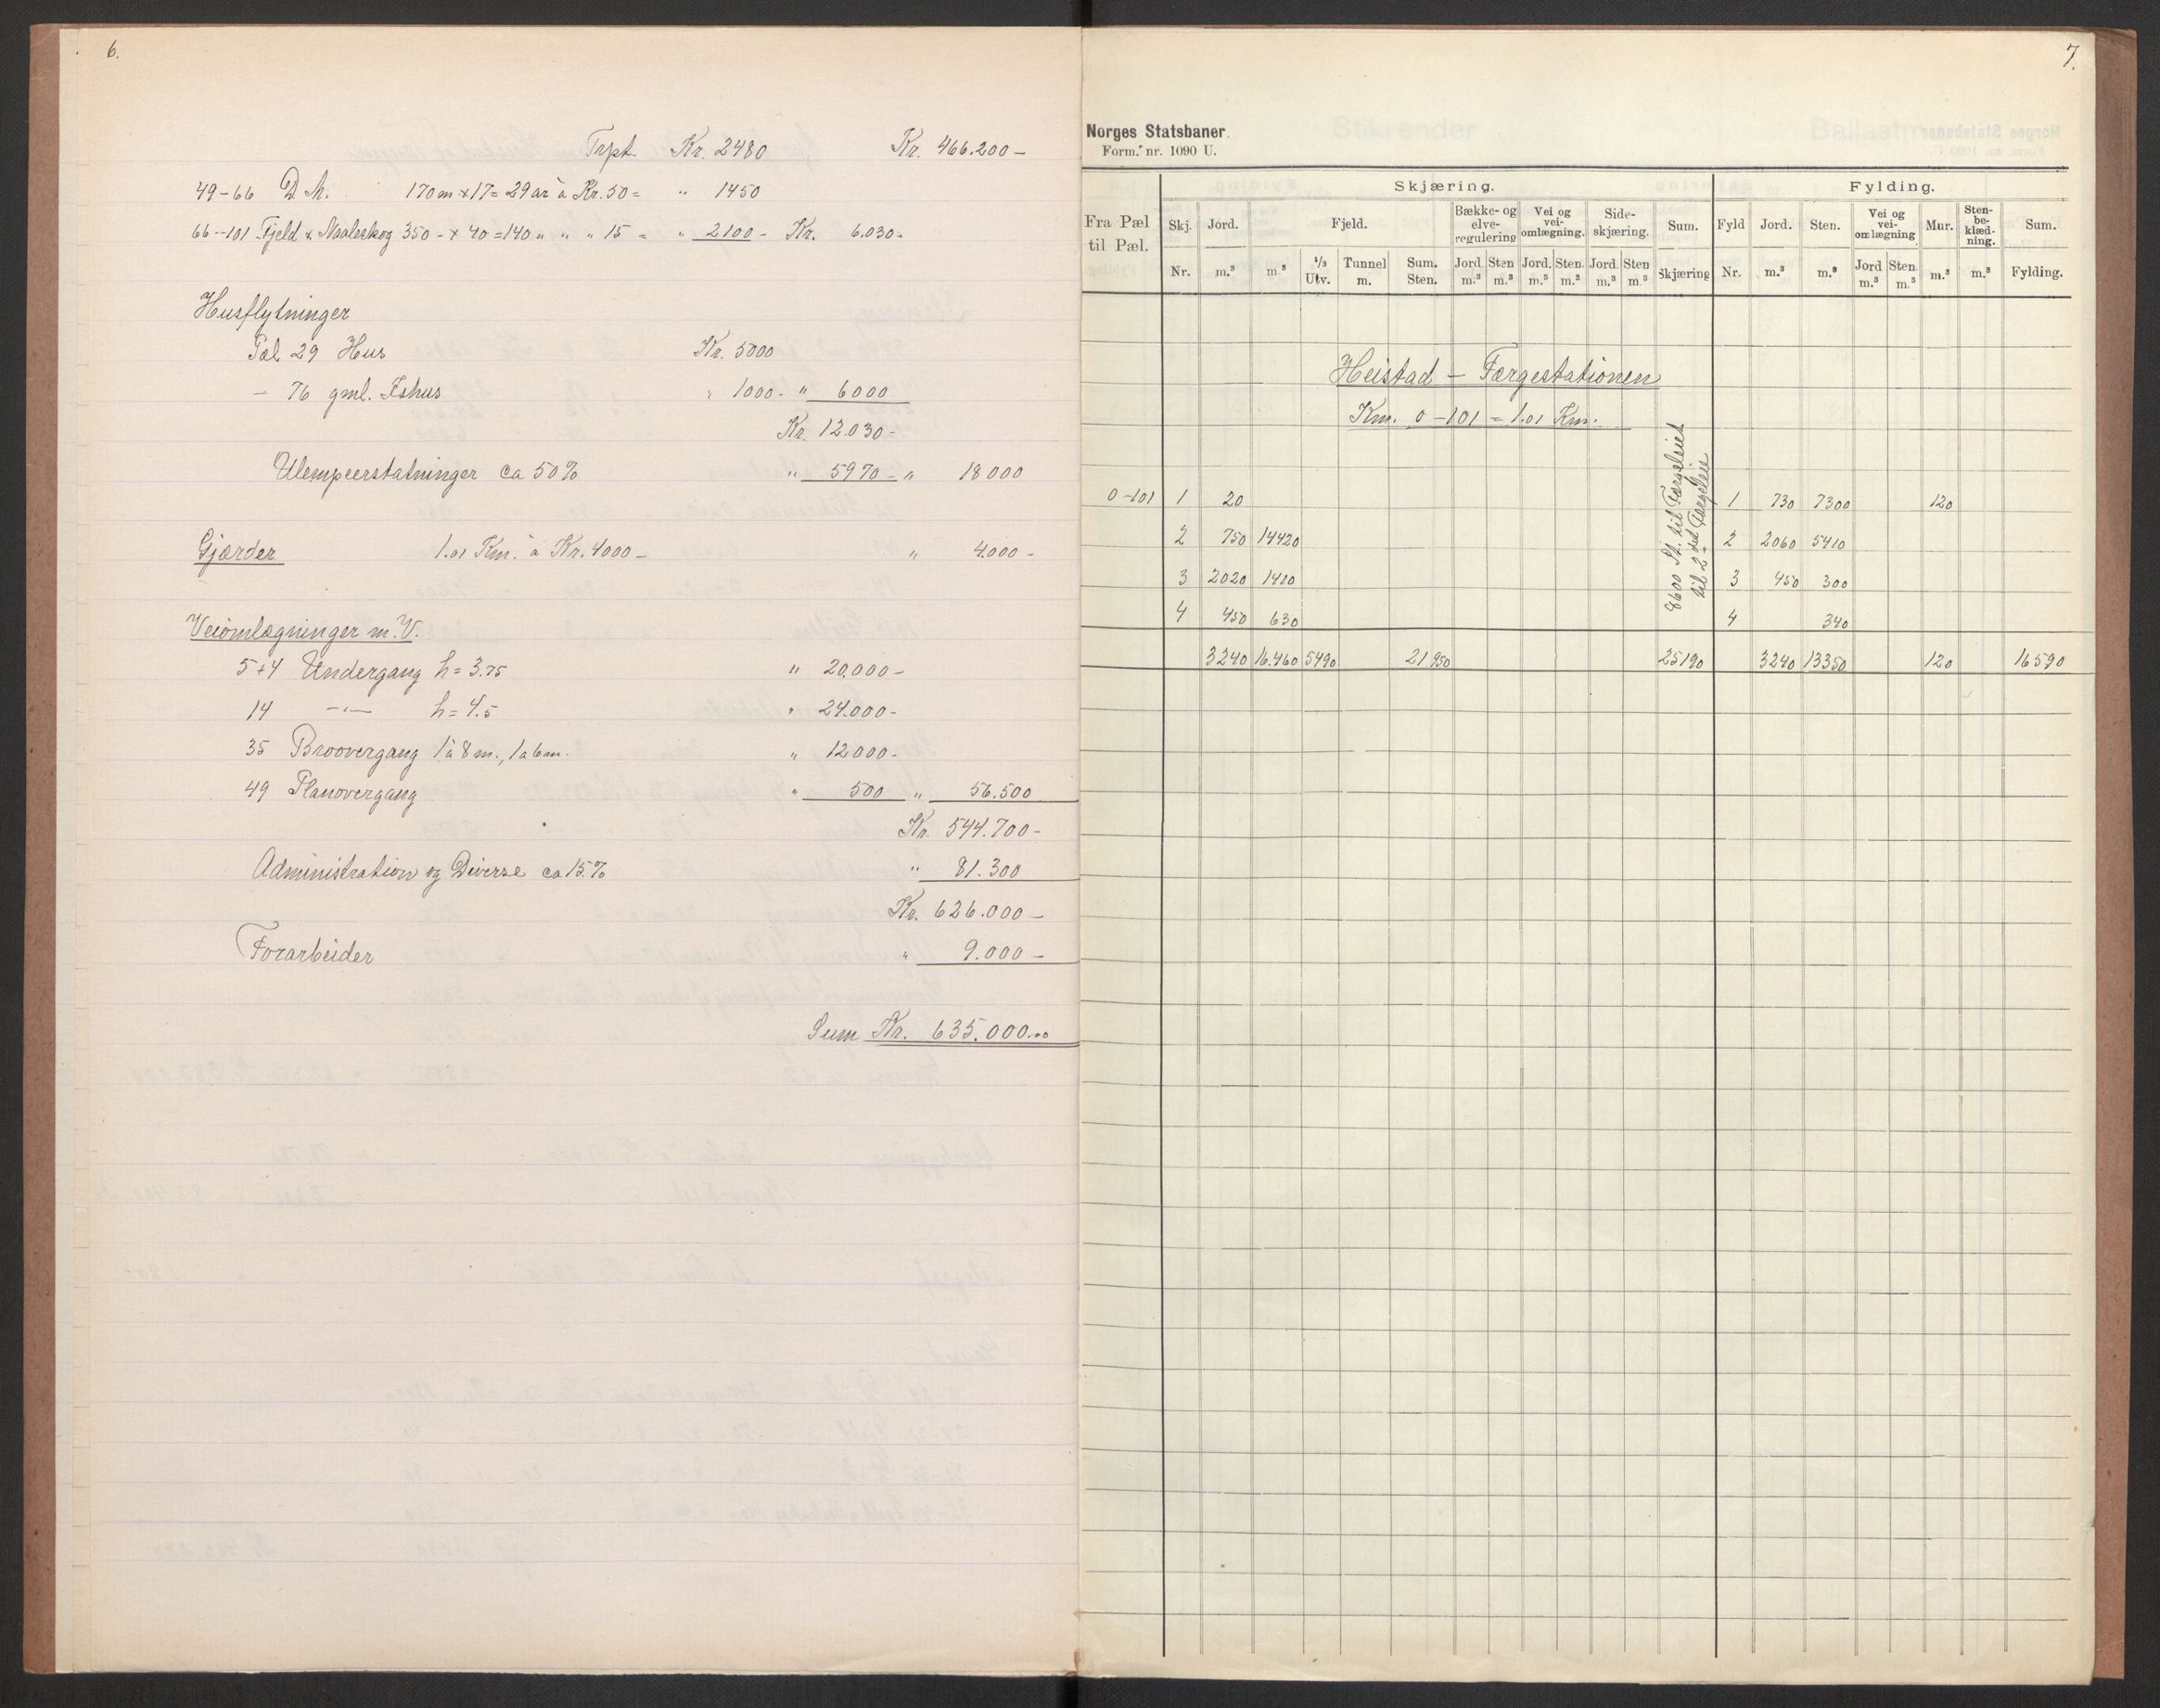 6.
Trpt. Kr. 2480 Kr. 466.200 –
49-66 D. M. 170 m × 17 = 29 ar à Kr. 50 = " 1450
66-101 Fjeld & Naaleskog 350 - × 40 = 140 " " " 15 = " 2100 - Kr. 6.030-
Husflytninger
Pæl 29 Hus Kr. 5000
– 76 gml. Ishus " 1000- " 6000
Kr. 12.030-
Ulempeerstatninger ca 50% " 5970 - " 18000
Gjærder 1.01 Km. à Kr. 4000 – " 4.000 -
Veiomlægninger m. V.
5+4 Undergang h = 3.75 " 20.000 –
14 –"– h = 4.5 " 24.000-
35 Broovergang 1 à 8 m., 1 a 6 m. " 12.000-
49 Planovergang " 500 " 56.500
Kr. 544.700-
Administration og Diverse ca 15% " 81.300
Kr. 626.000 –
Forarbeider " 9.000 –
Sum Kr. 635.000.00
7.
Norges Statsbaner.
Form. nr. 1090 U.
Skjæring. Fylding.
Fra Pæl til Pæl. Skj. Jord. Fjeld. Bække- og elve-regulering Vei og vei-omlægning. Side-skjæring. Sum. Fyld Jord. Sten. Vei og vei-omlægning Mur. Sten-be-klæd-ning. Sum.
Nr. m.³ m.³ 1/3 Utv. Tunnel m. Sum. Sten. Jord m.³ Sten m.³ Jord. m.³ Sten. m.³ Jord m.³ Sten m.³ Skjæring Nr. m.³ m.³ Jord m.³ Sten m.³ m.³ m.³ Fylding.
Heistad – Færgestationen
Km. 0 – 101 = 1.01 Km.
8600 St. til Færgeleiet
til 2det Færgeleie
0-101 1 20 1 730 7300 120
2 750 14420 2 2060 5410
3 2020 1410 3 450 300
4 450 630 4 340
3240 16.460 5490 21950 25190 3240 13350 120 16590